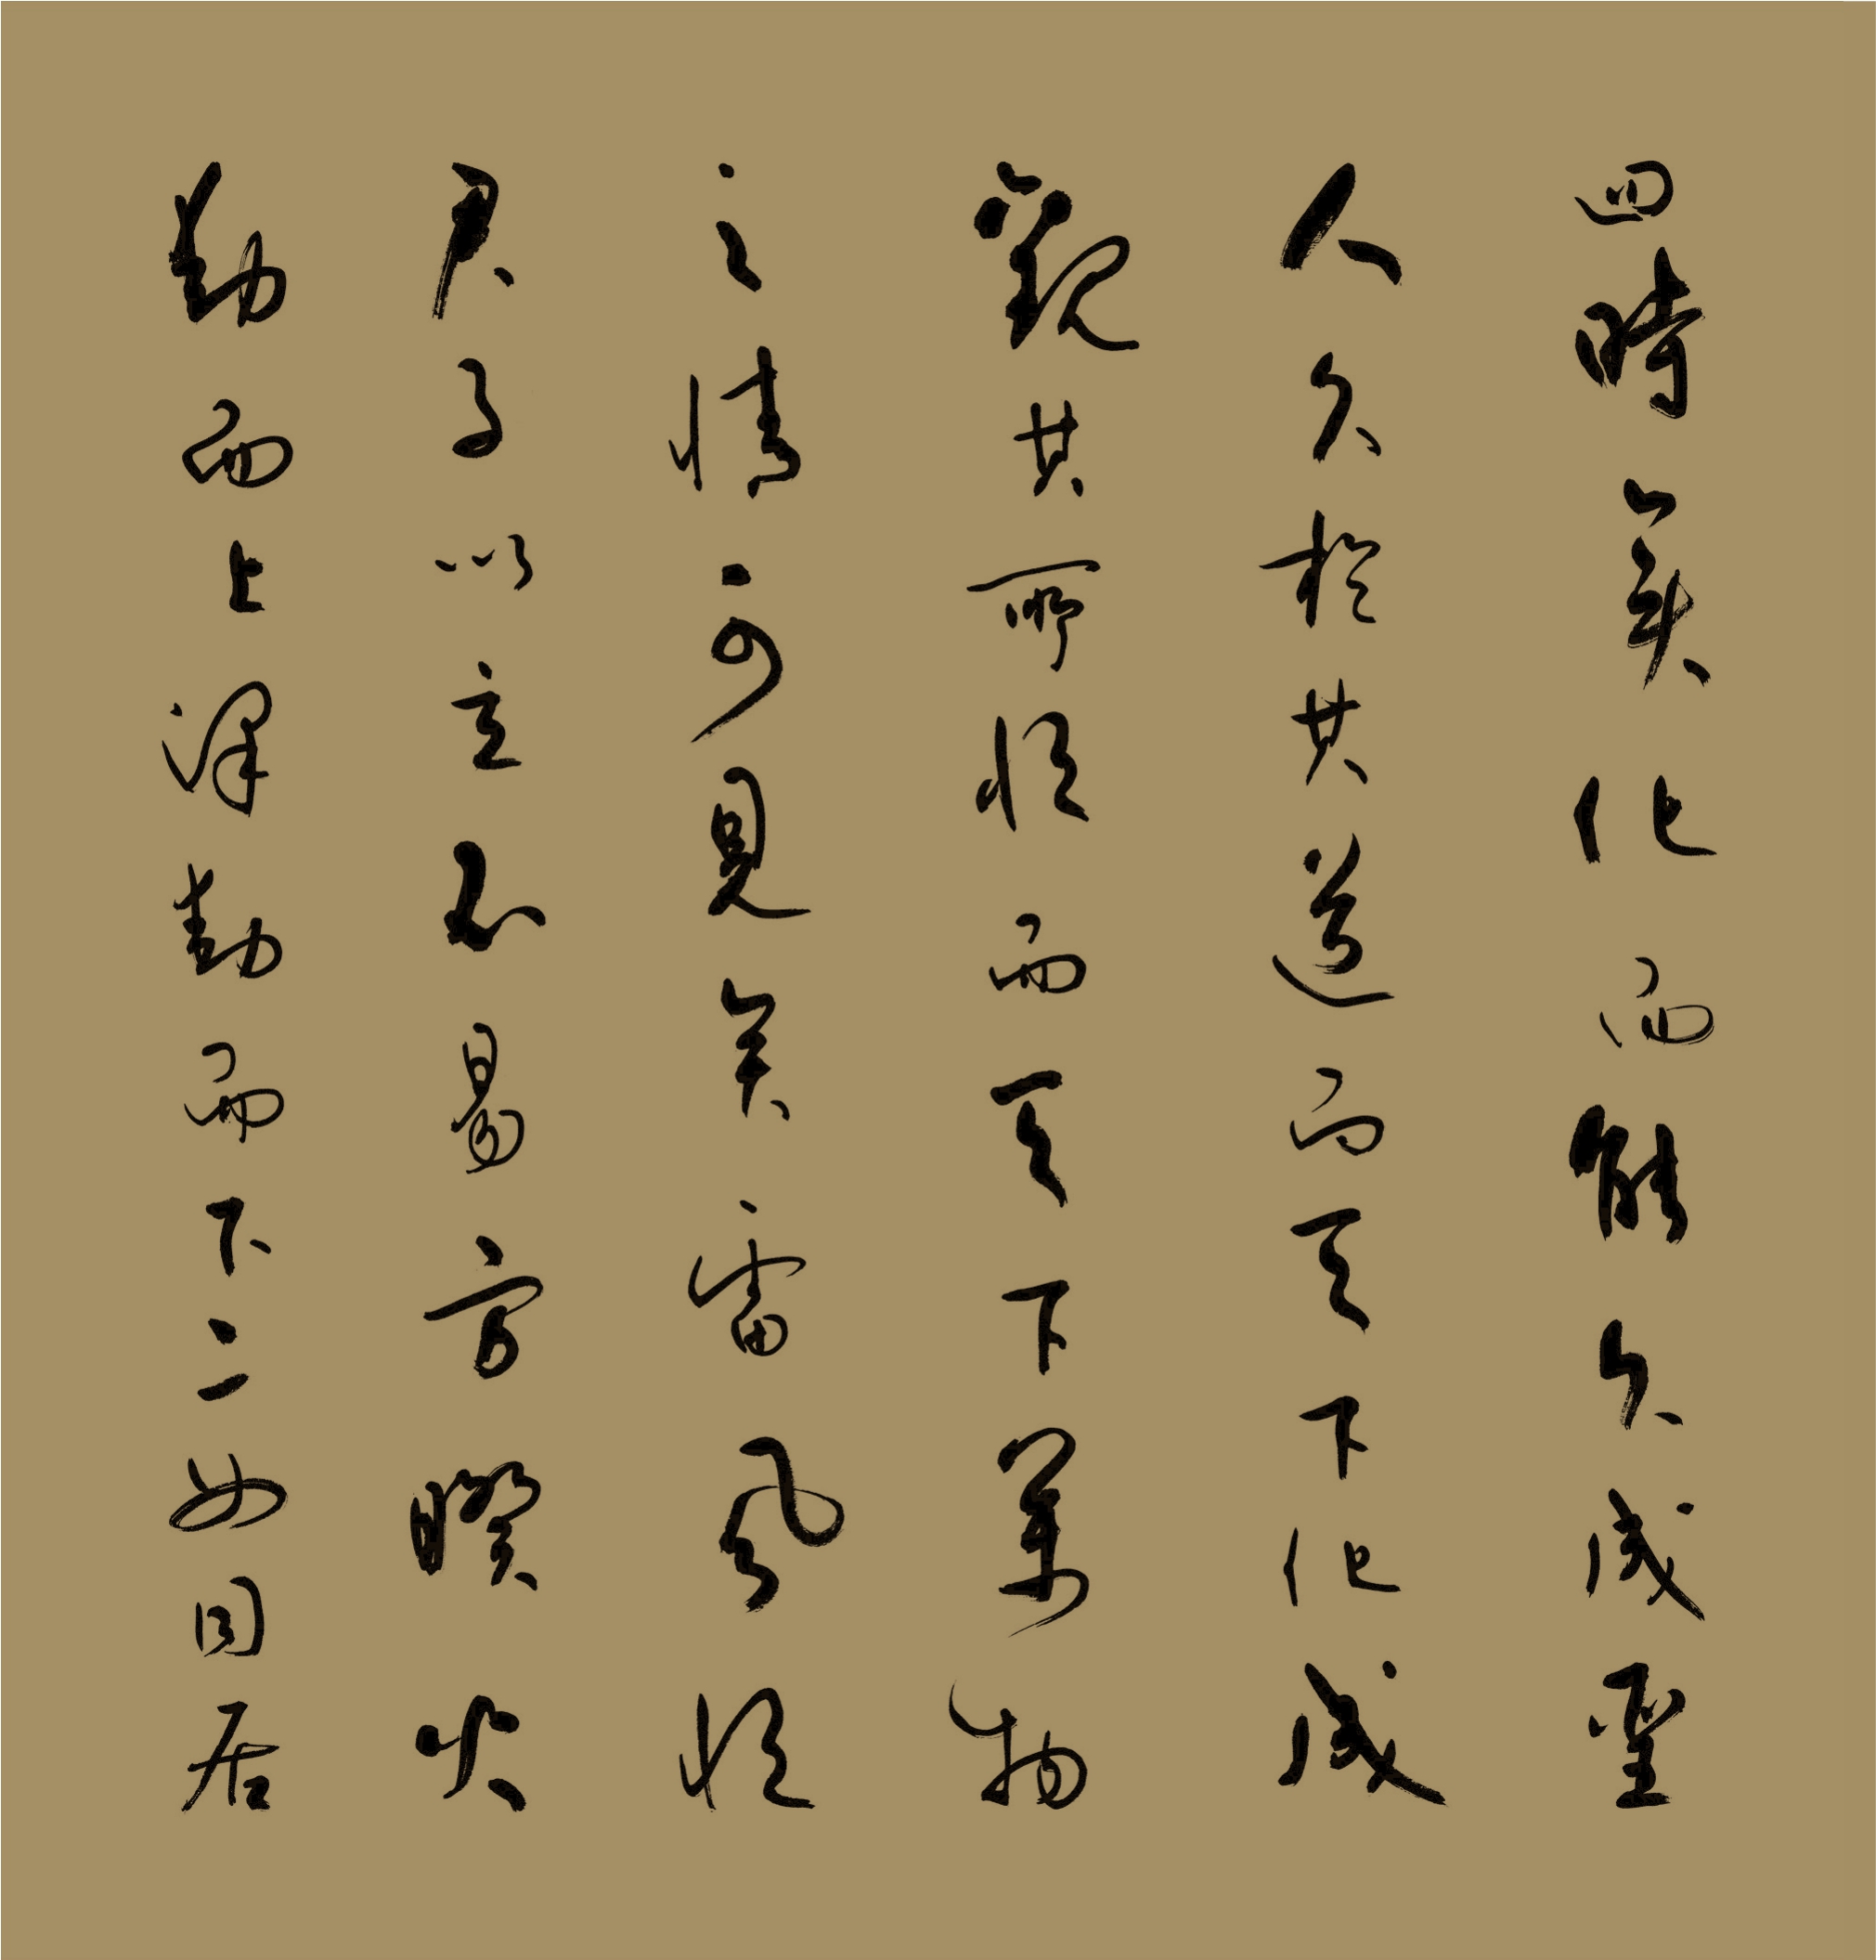 四時變化而能久成聖
人久於其道而天下化成
觀其所恒而天下萬物
之情可見矣雷風恒
君子以立不易方睽火
動而上澤動而下二女同居